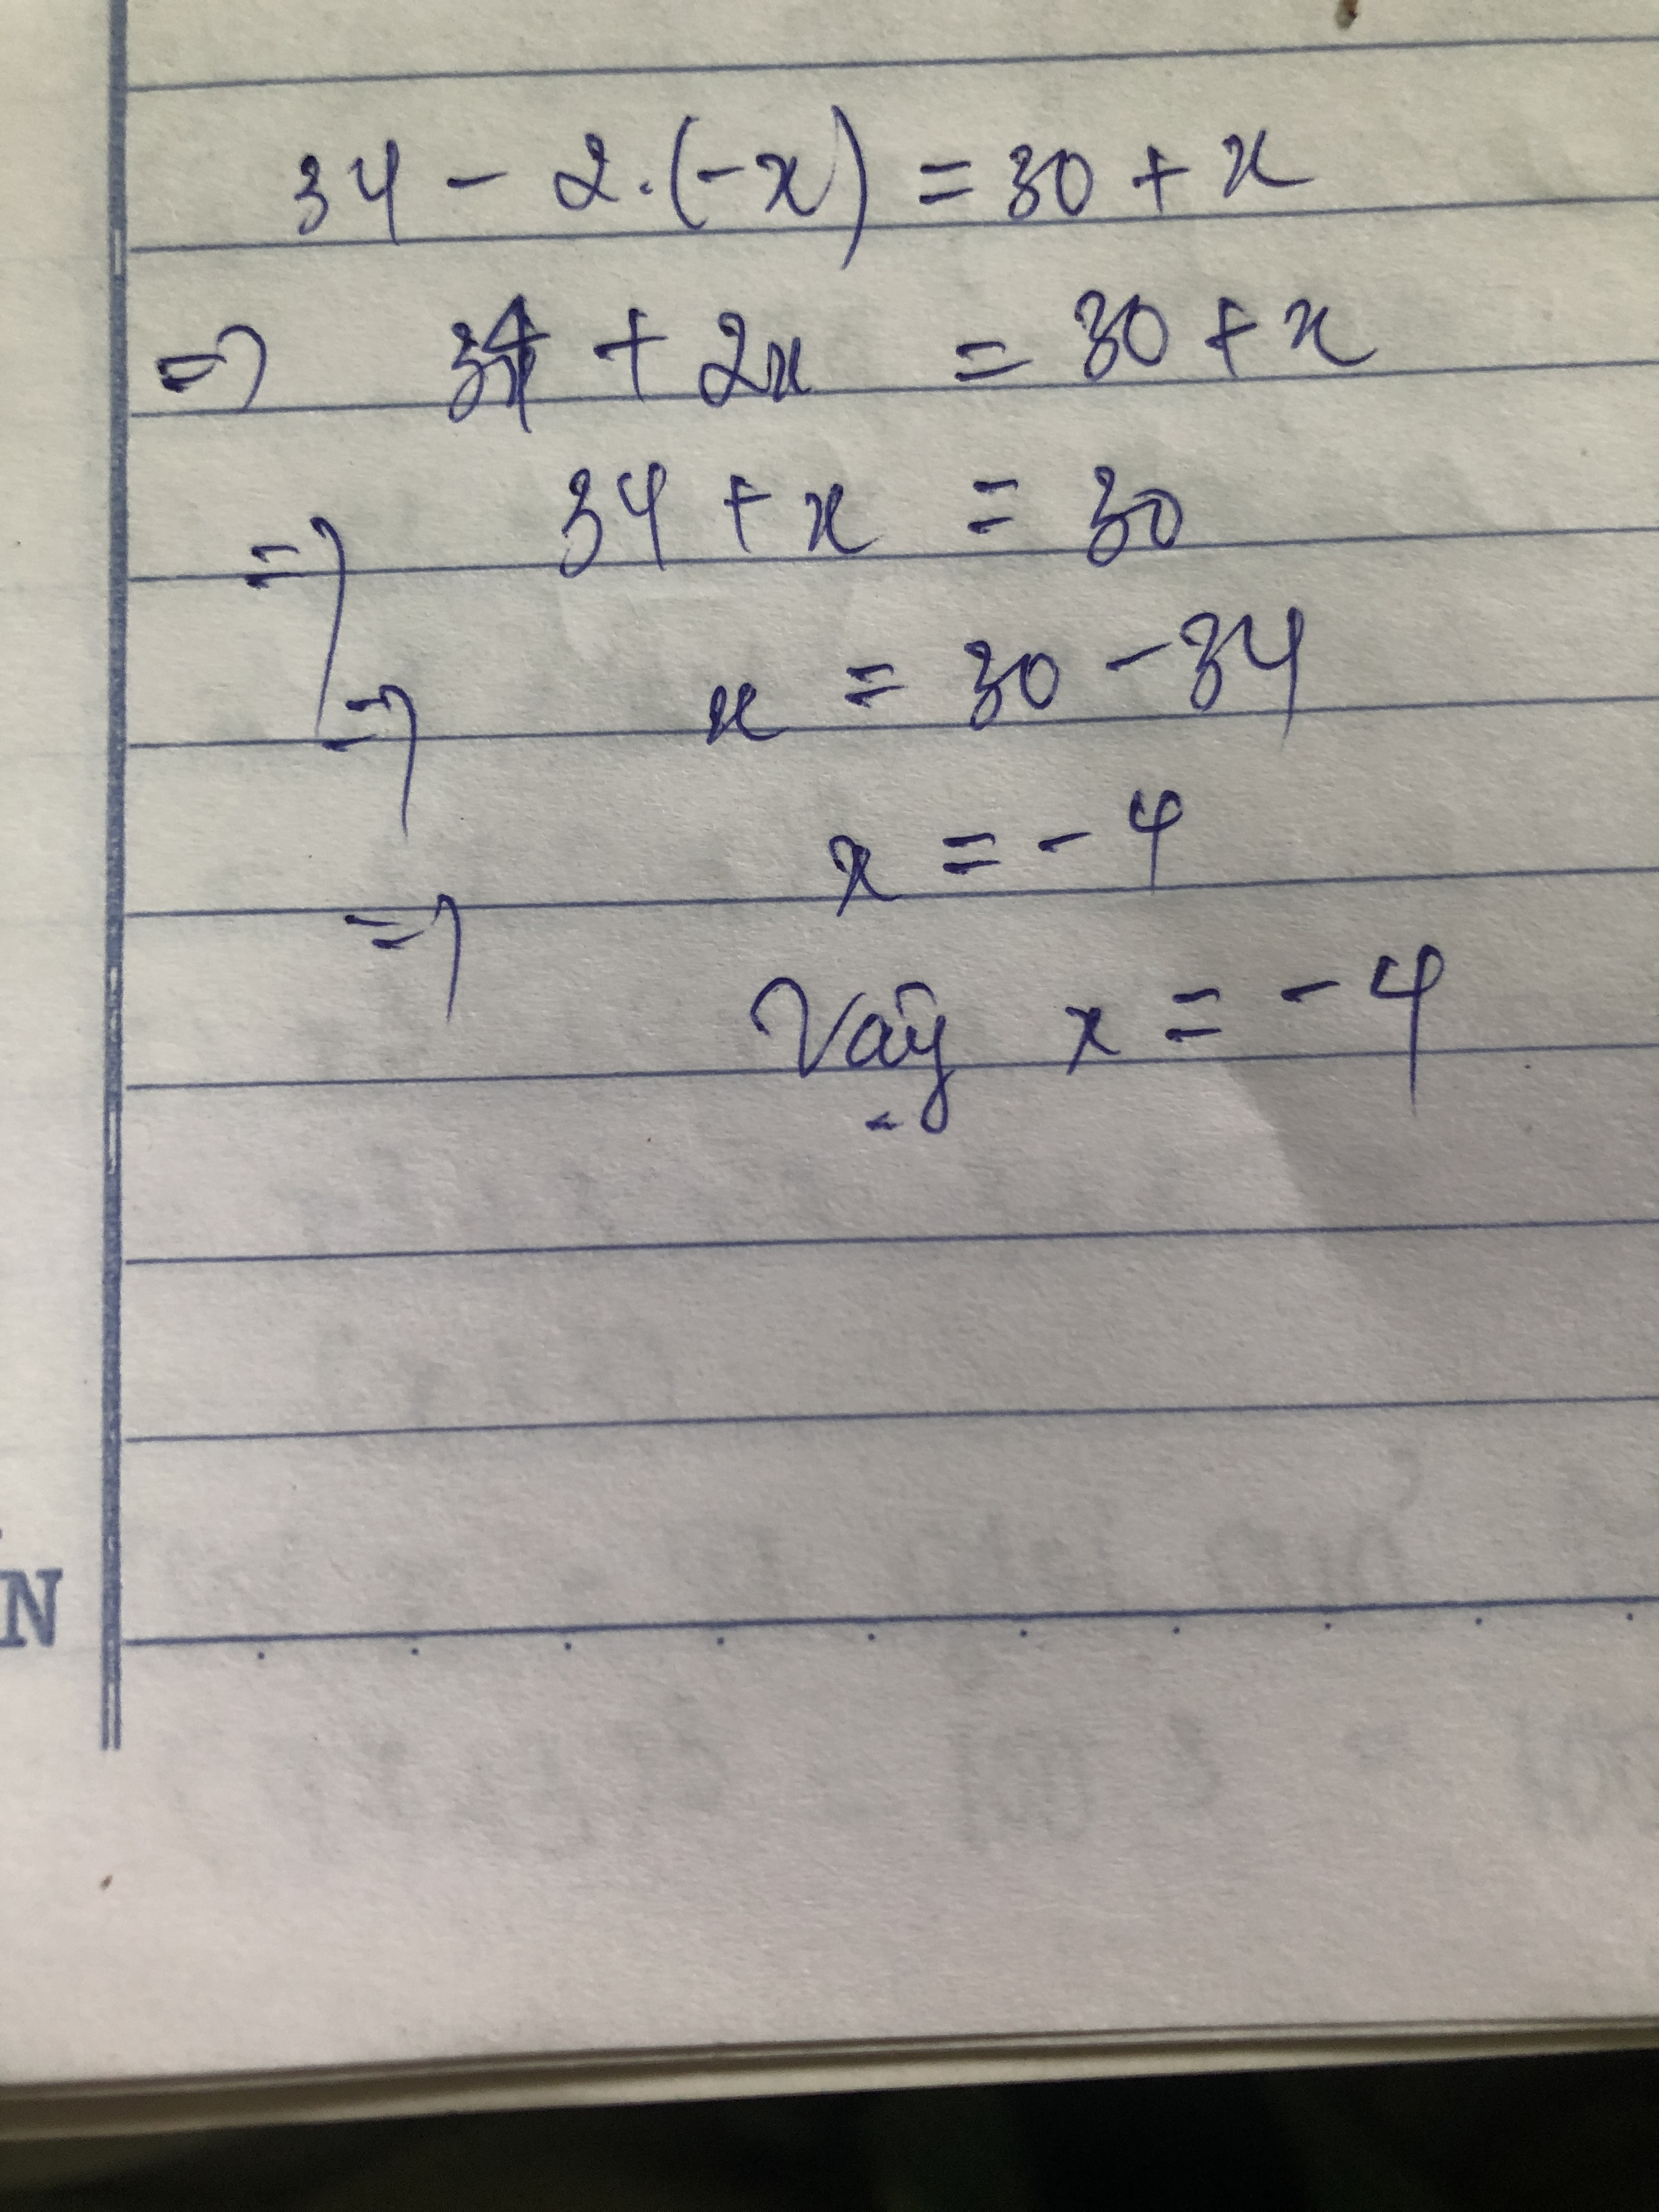 34 - 2.(-x) = 30 + x
=> 34 + 2x = 30 + x
=> 34 + x = 30
=> x = 30 - 34
=> x = - 4
Vậy x = - 4
N